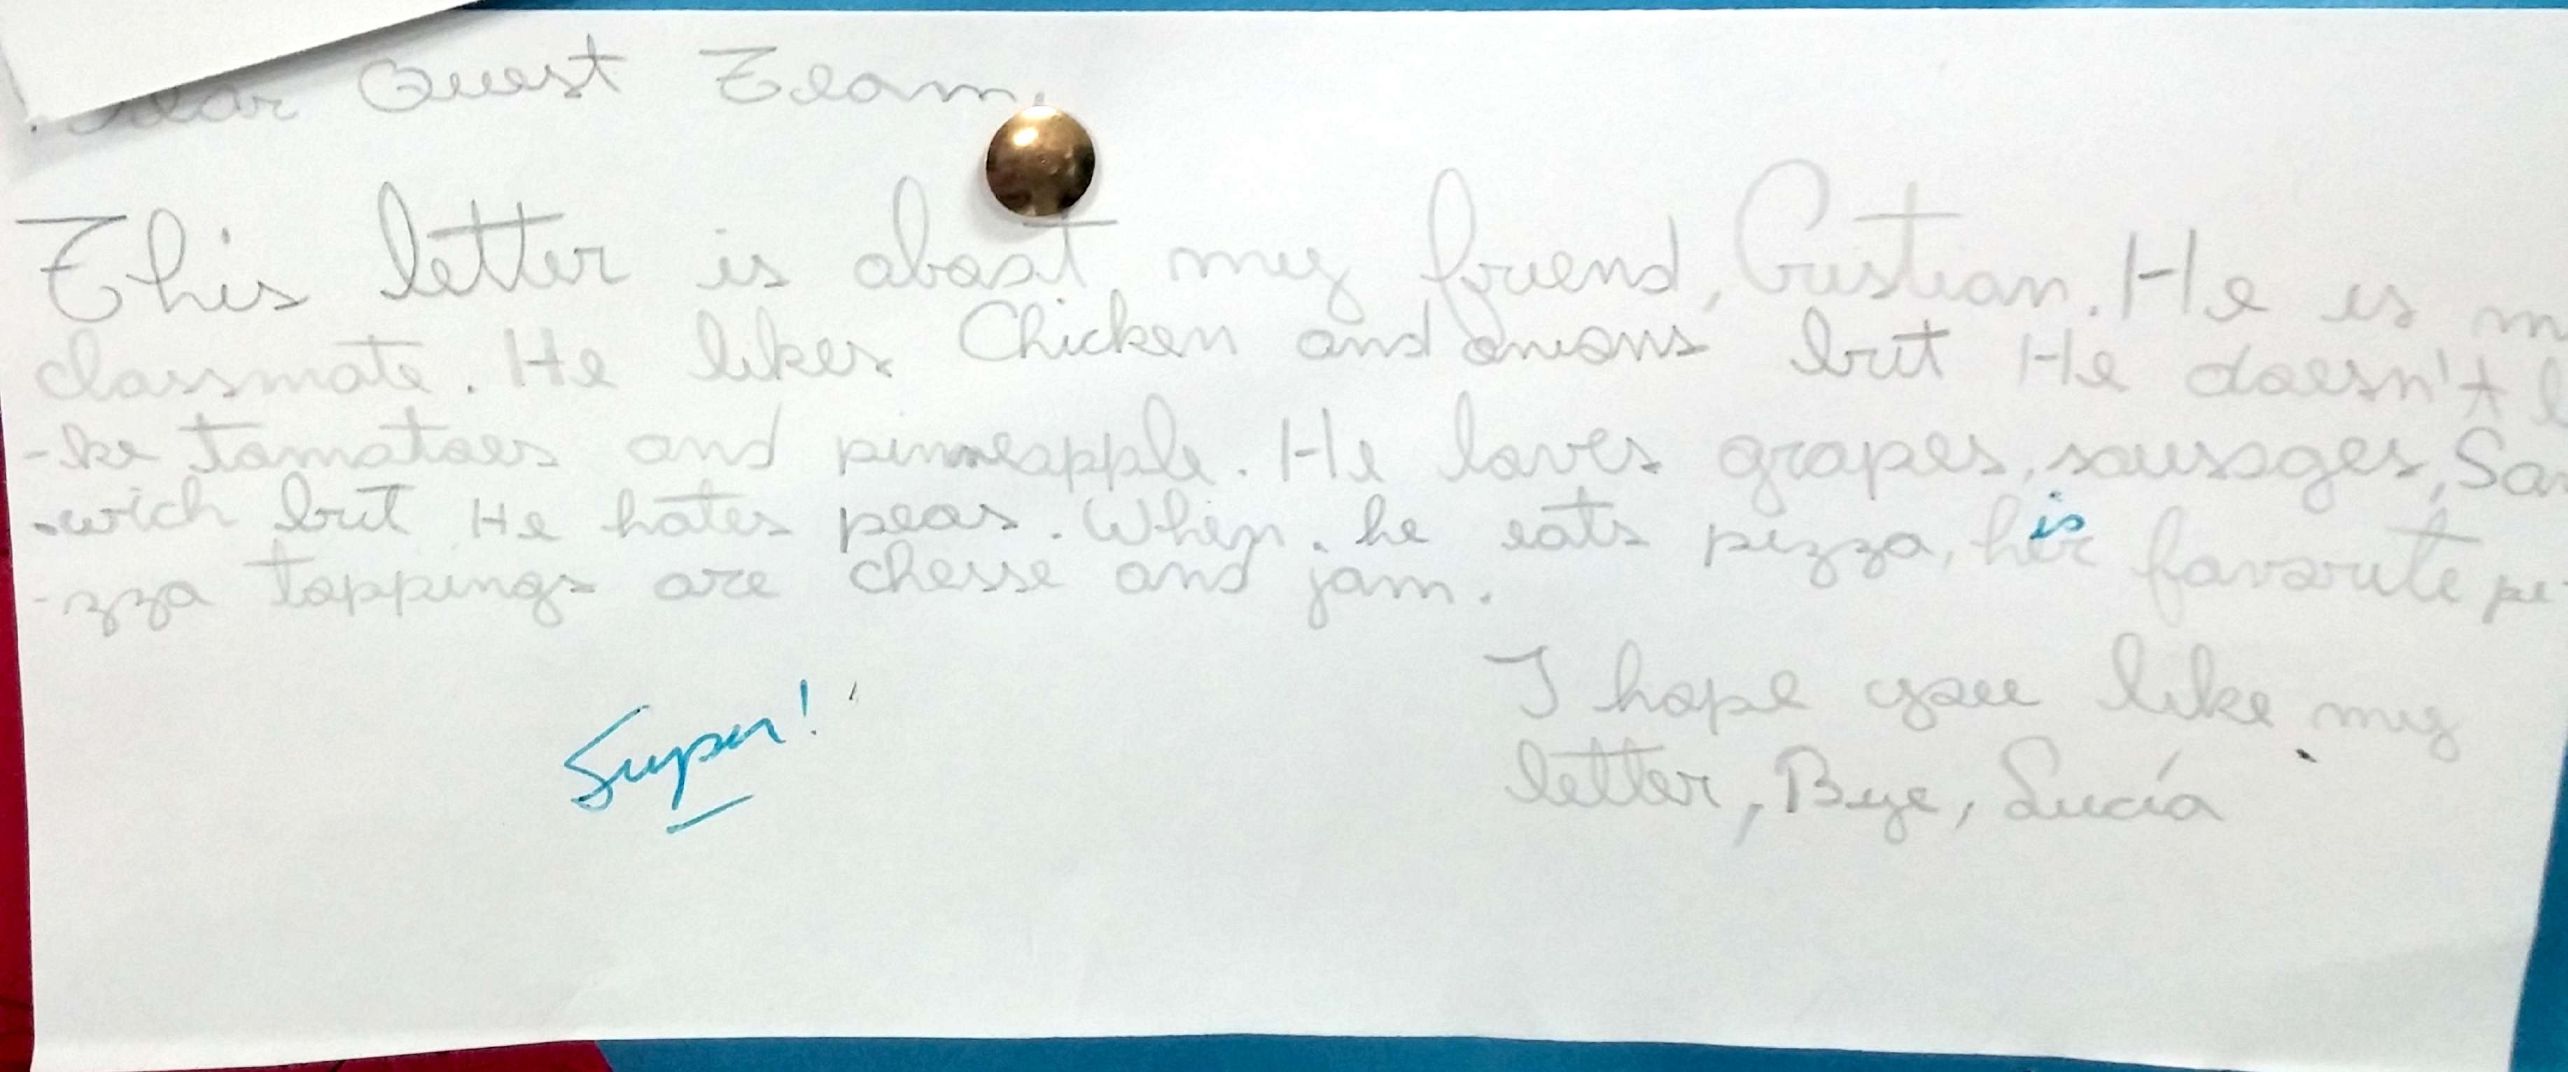 Dear Quest Team,
This letter is about my friend, Cristian. He is m
classmate. He likes Chicken and onions but He doesn't l
-ke tomatoes and pinneapple. He loves grapes, sausages, San
-wich but He hates peas. When he eats pizza, his favourite pi
-zza toppings are chesse and jam.
I hope you like my
letter, Bye, Lucía
Super!